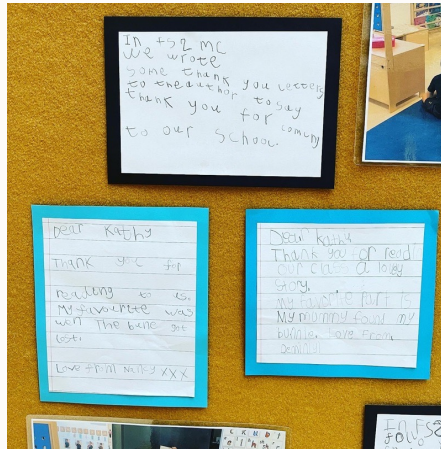 In FS2 MC
we wrote
some thank you letters
to the author to say
thank you for coming
to our school.
Dear Kathy
Thank you for
reading to us.
My favourite was
wen the bune got
lost.
Love from XXX
Dear Kathy
Thank you for read
our class a lovey
story.
my favorite part is
My mummy found my
bunnie. Love From
In FS2